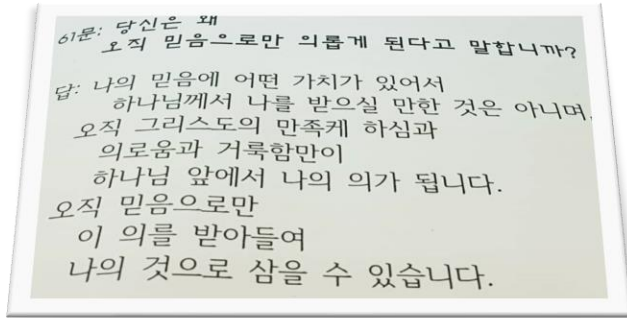 61문: 당신은 왜
오직 믿음으로만 의롭게 된다고 말합니까?
답: 나의 믿음에 어떤 가치가 있어서
하나님께서 나를 받으실 만한 것은 아니며,
오직 그리스도의 만족케 하심과
의로움과 거룩함만이
하나님 앞에서 나의 의가 됩니다.
오직 믿음으로만
이 의를 받아들여
나의 것으로 삼을 수 있습니다.